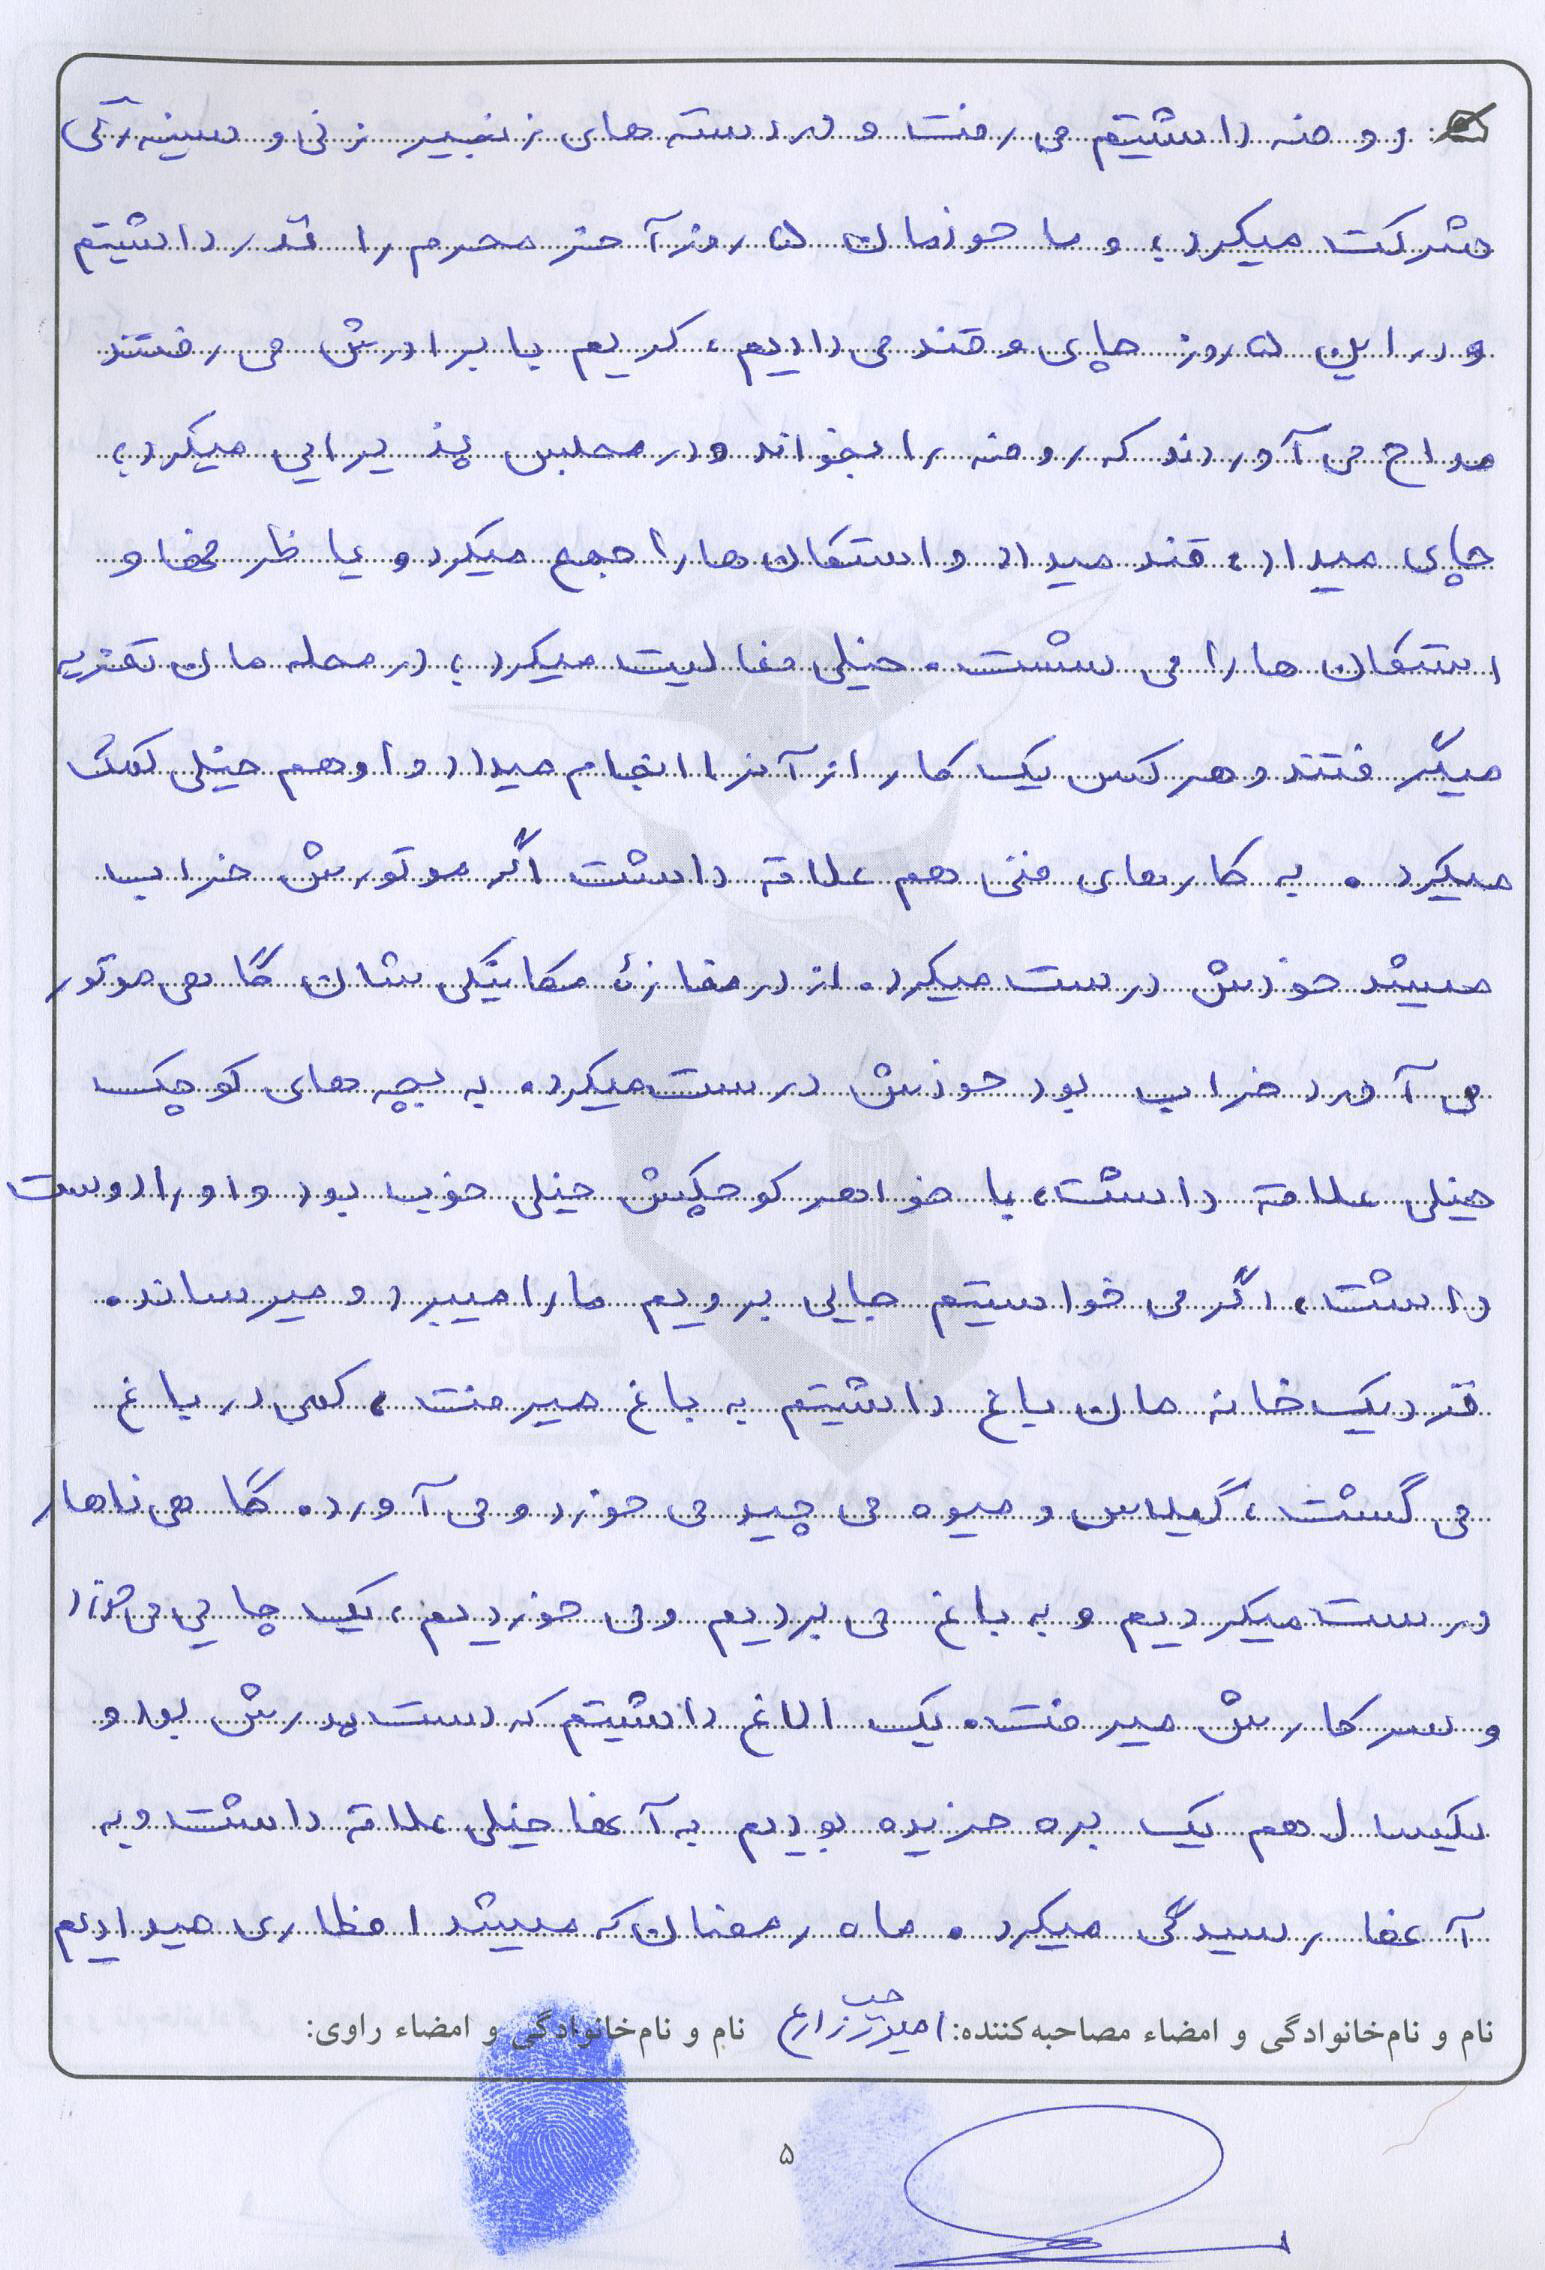 روضه داشتیم می رفت و در دسته های زنجیر زنی و سینه زنی
شرکت میکرد، و ما خودمان ۵ روز آخر محرم را نذر داشتیم
و در این ۵ روز چای و قند می دادیم، کریم با برادرش می رفتند
مداح می آوردند که روضه را بخواند و در مجلس پذیرایی میکرد،
چای میداد، قند میداد و استکان ها را جمع میکرد و یا ظرفها و
استکان ها را می شست. خیلی فعالیت میکرد، در محله مان تعزیه
میگرفتند و هر کس یک کار از آنرا انجام میداد و او هم خیلی کمک
میکرد. به کارهای فنی هم علاقه داشت اگر موتورش خراب
میشد خودش درست میکرد. از در مغازهٔ مکانیکی شان گاهی موتور
می آورد خراب بود خودش درست میکرد. به بچه های کوچک
خیلی علاقه داشت، با خواهر کوچکش خیلی خوب بود و او را دوست
داشت، اگر می خواستیم جایی برویم ما را میبرد و میرساند.
نزدیک خانه مان باغ داشتیم به باغ میرفت، کمی در باغ
می گشت، گیلاس و میوه می چید می خورد و می آورد. گاهی ناهار
درست میکردیم و به باغ می بردیم و می خوردیم، یک چایی می خورد
و سر کارش میرفت. یک الاغ داشتیم که دست پدرش بود و
یکسال هم یک بره خریده بودیم به آنها خیلی علاقه داشت و به
آنها رسیدگی میکرد. ماه رمضان که میشد افطاری میدادیم
نام و نام‌خانوادگی و امضاء مصاحبه‌کننده: نام و نام‌خانوادگی و امضاء راوی:
۵